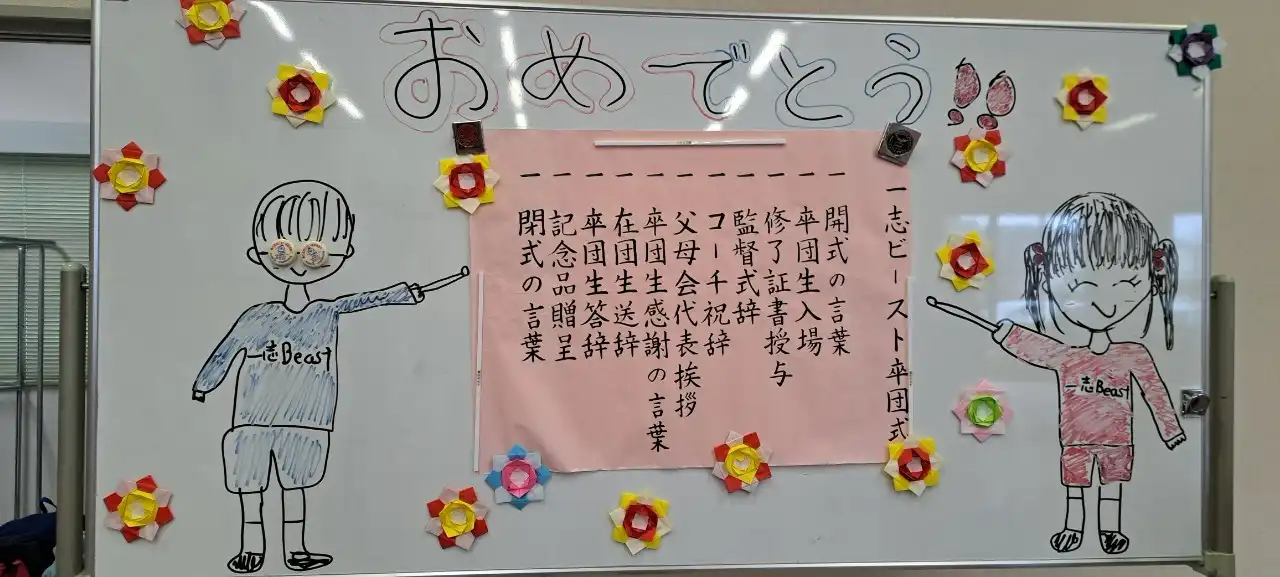 おめでとう!!
一志ビースト卒団式
一 開式の言葉
一 卒団生入場
一 修了証書授与
一 監督式辞
一 コーチ祝辞
一 父母会代表挨拶
一 卒団生感謝の言葉
一 在団生送辞
一 卒団生答辞
一 記念品贈呈
一 閉式の言葉
一志Beast
一志Beast